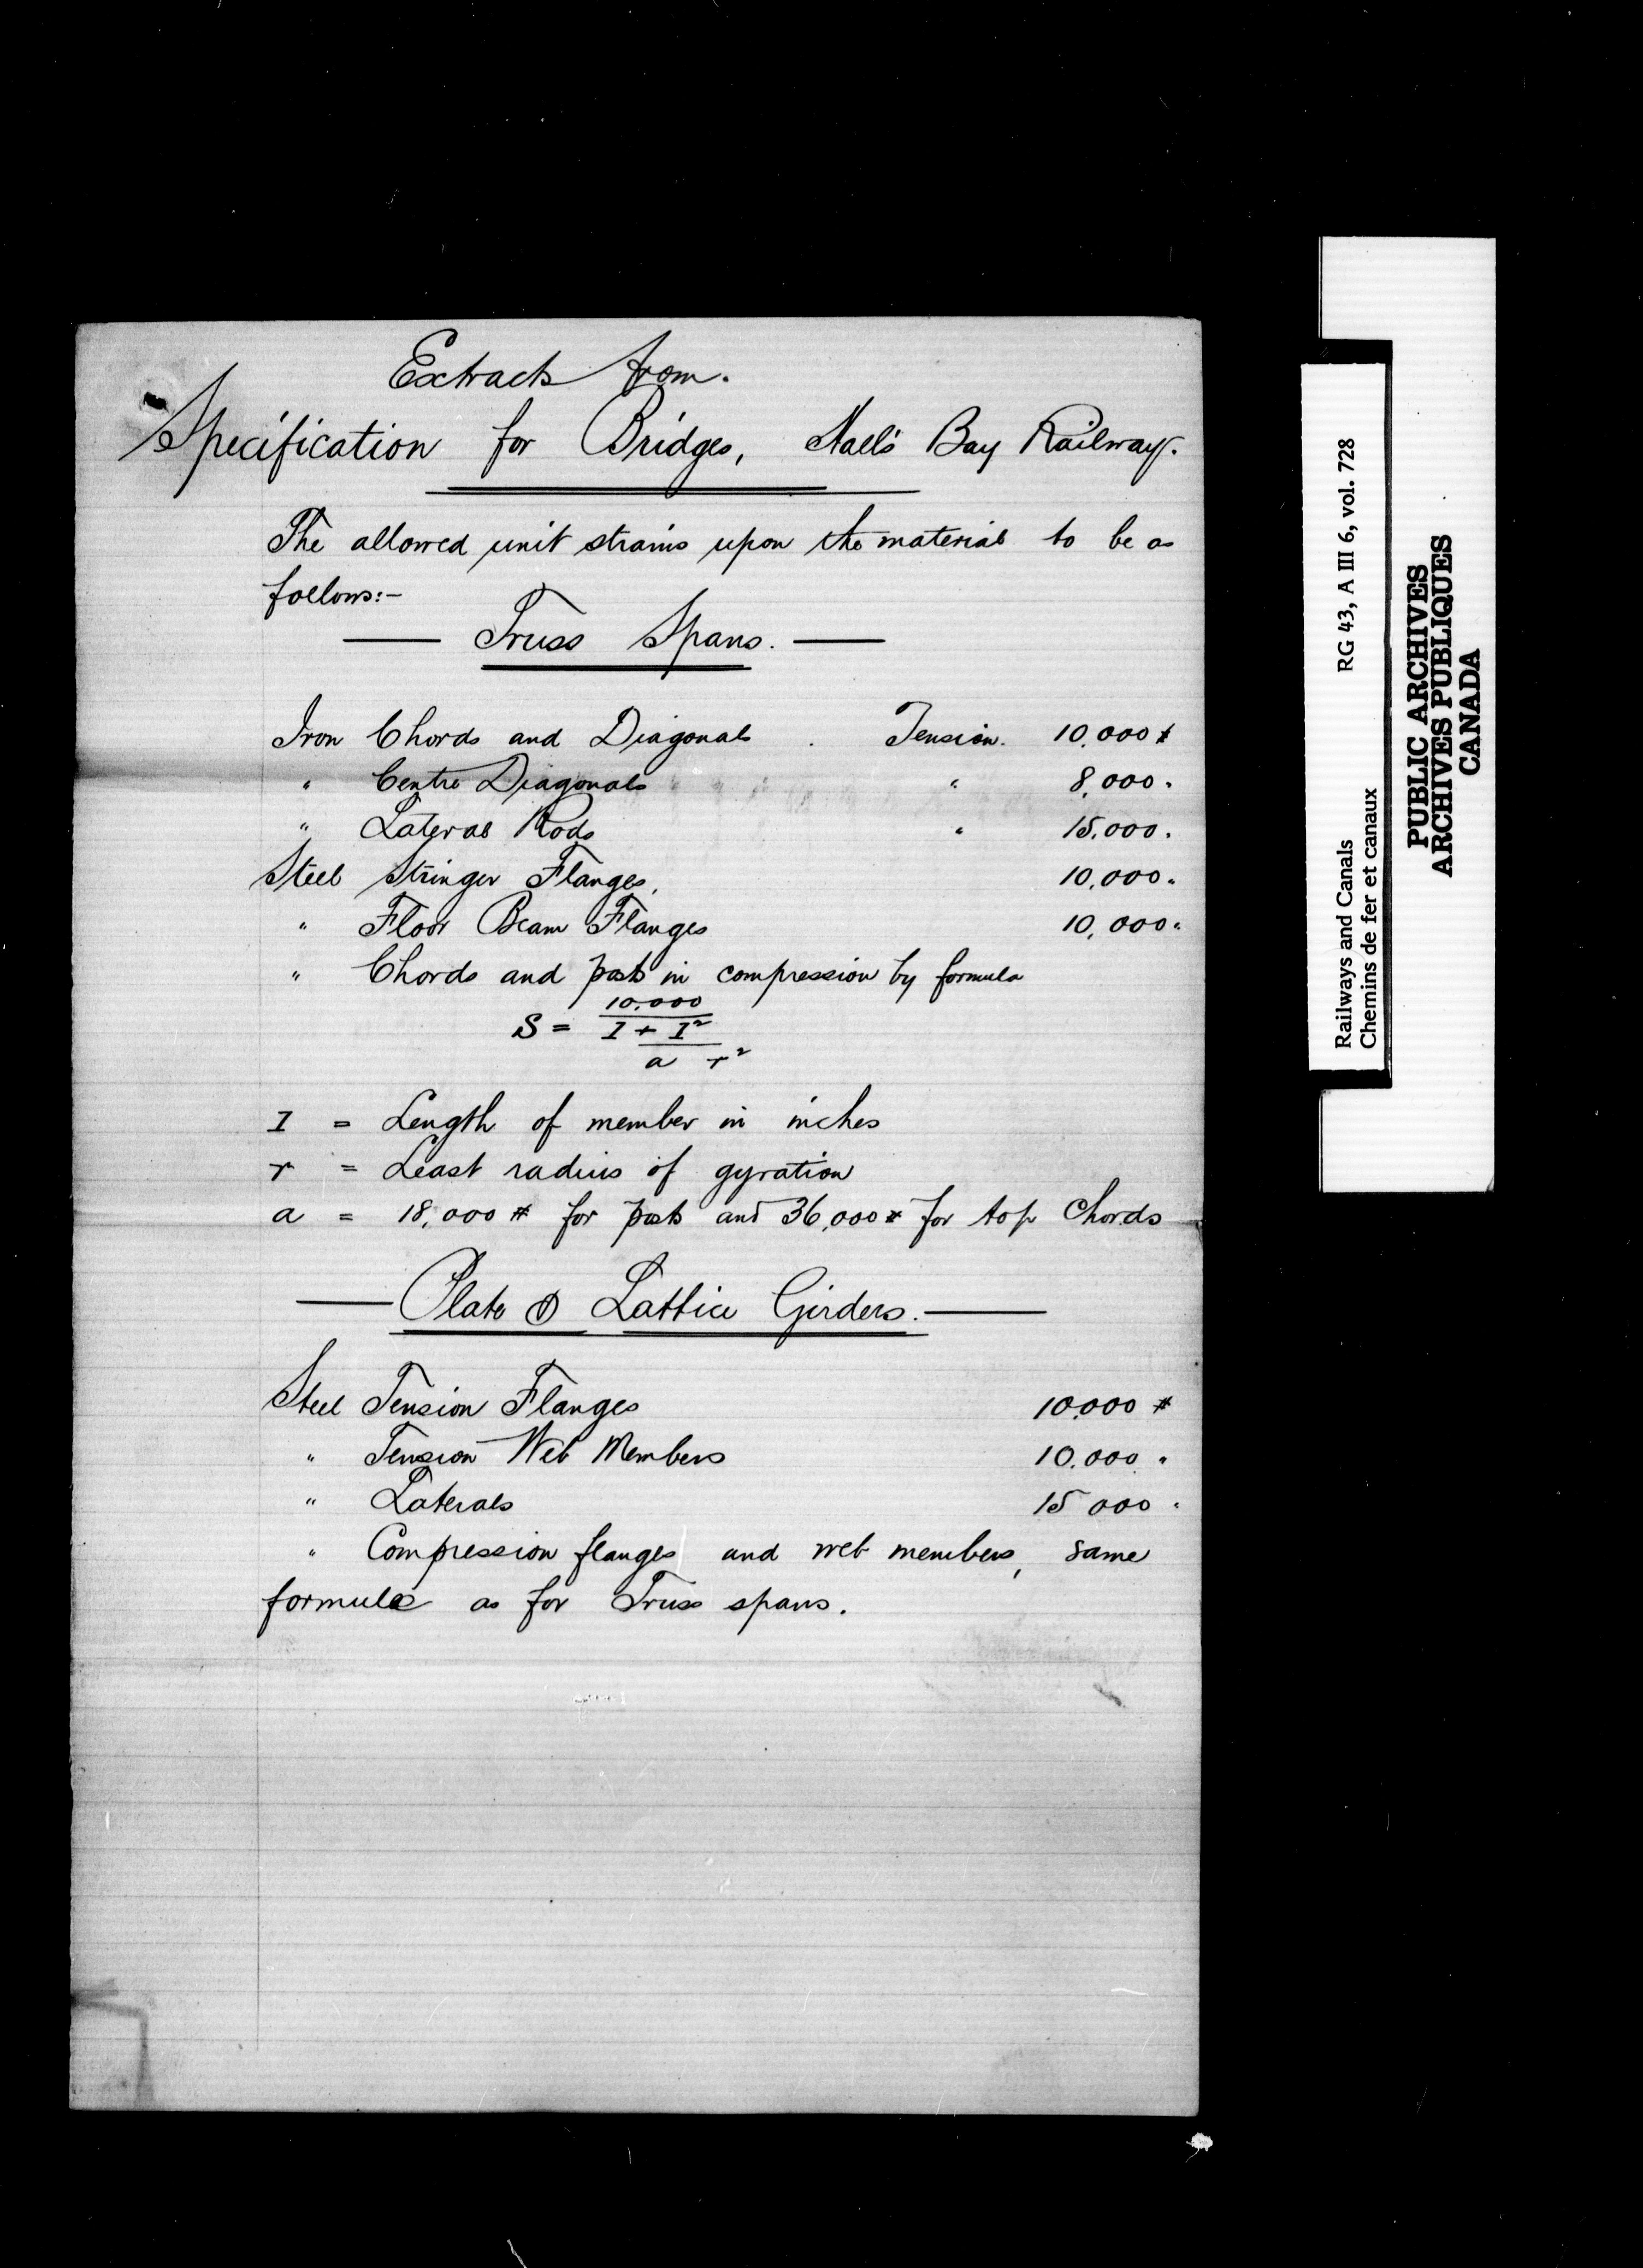 Extracts from.
Specification for Bridges, Hall's Bay Railway.
The allowed unit strains upon the material to be as
follows:-
— Truss Spans. —
Iron Chords and Diagonals . Tension. 10,000 #
" Centre Diagonals " 8,000 "
" Lateral Rods " 15,000 "
Steel Stringer Flanges, 10,000 "
" Floor Beam Flanges 10,000 "
" Chords and posts in compression by formula
10,000
S = I + I²
a r²
I = Length of member in inches
r = Least radius of gyration
a = 18,000 # for posts and 36,000 # for top Chords
— Plate & Lattice Girders. —
Steel Tension Flanges 10,000 #
" Tension Web Members 10,000 "
" Laterals 15 000 "
" Compression flanges and web members, same
formula as for Truss spans.
Railways and Canals RG 43, A III 6, vol. 728
Chemins de fer et canaux
PUBLIC ARCHIVES
ARCHIVES PUBLIQUES
CANADA